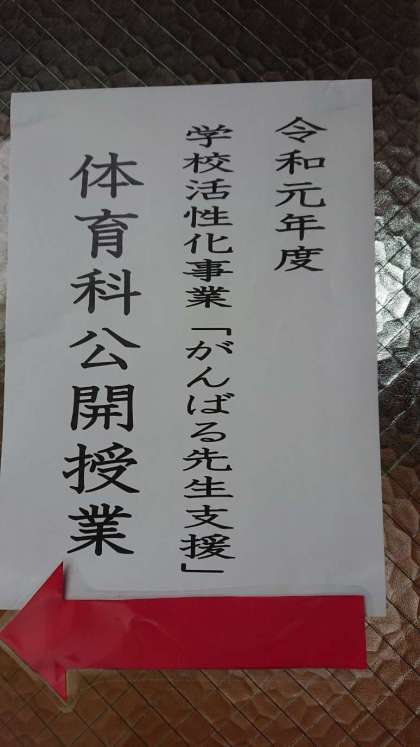 令和元年度
学校活性化事業「がんばる先生支援」
体育科公開授業